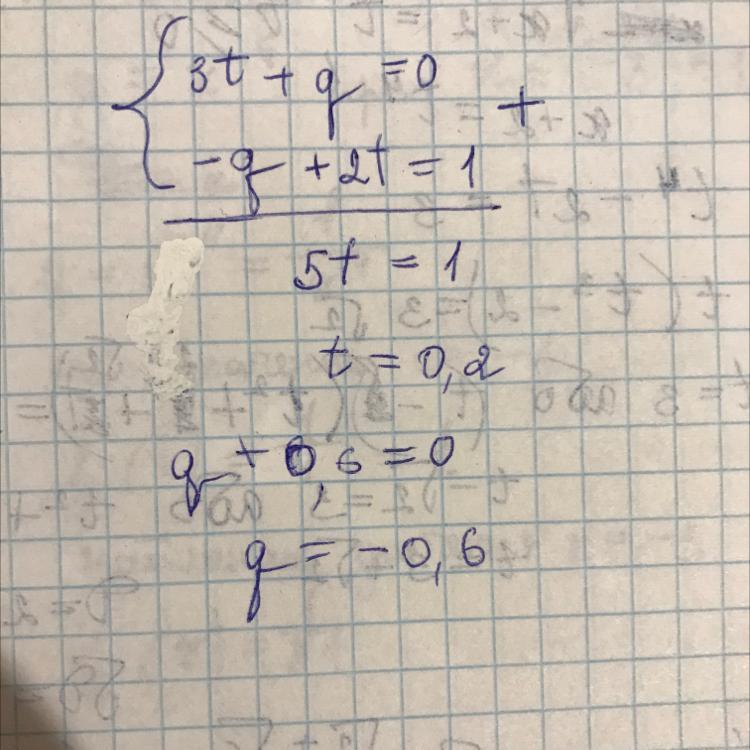 3t + q = 0
+
-q + 2t = 1
5t = 1
t = 0,2
q + 0,6 = 0
q = -0,6